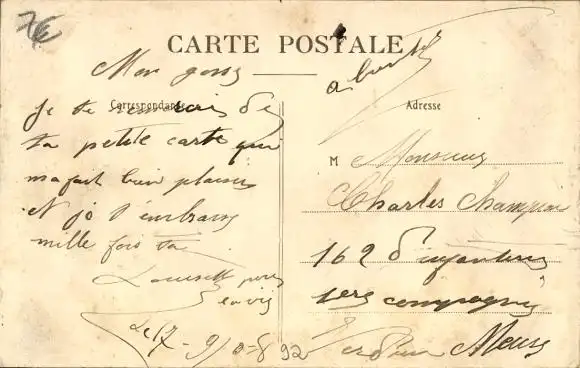 7€
CARTE POSTALE
a bientot
Mon goss
Correspondance
Adresse
Je te remercie de
ta petite carte qui
m a fait bien plaisir
et je t'embrass
mille fois ta
Louisette pour
la vie
Le 17 - 9
M Monsieur
Charles Champion
162 d'infanterie
1ere compagnie
Verdun Meuse